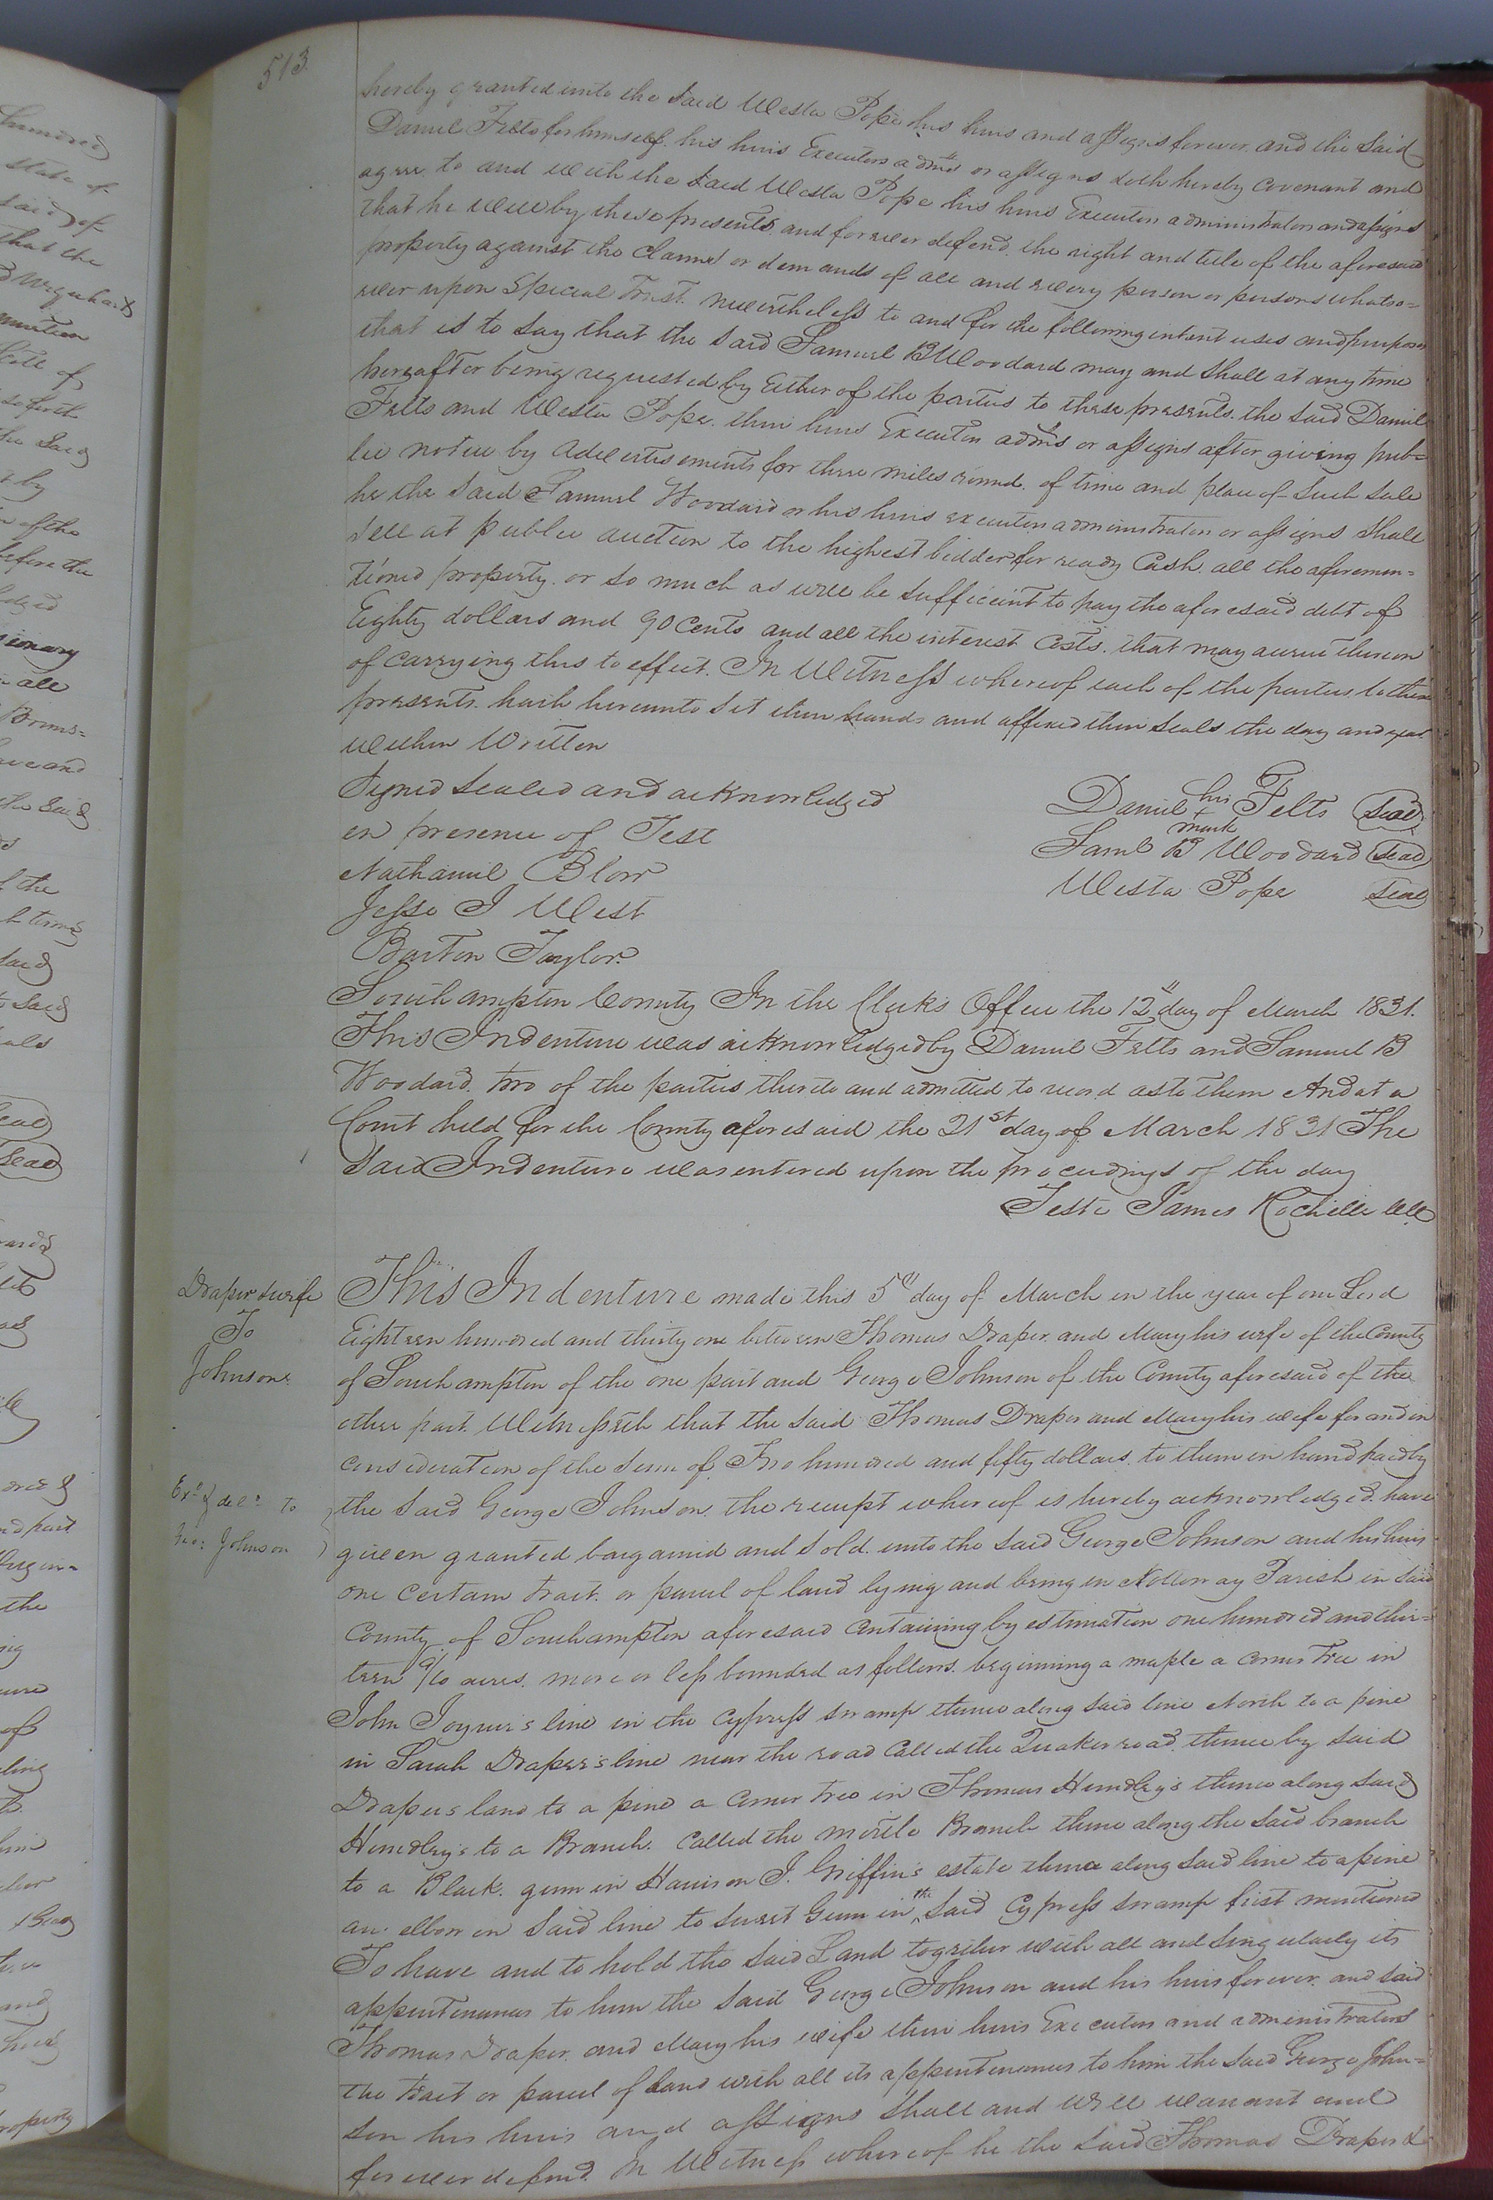 513
hereby granted unto the said Westa Pope his heirs and assigns forever and the said
Daniel Felts for himself his heirs Executors admrs or assigns doth hereby covenant and
agree to and with the said Westa Pope his heirs Executors administrators and assigns
that he will by these presents and forever defend the right and title of the aforesaid
property against the claims or demands of all and every person or persons whatso=
ever upon Special Trust nevertheless to and for the following intent uses and purposes
that is to say that the said Samuel B Woodard may and shall at any time
hereafter being requested by Either of the parties to these presents the said Daniel
Felts and Westa Pope their heirs Executors admrs or assigns after giving pub=
lic notice by advertisements for three miles round of time and place of Such Sale
he the said Samuel Woodard or his heirs executors administrators or assigns shall
Sell at public auction to the highest bidder for ready Cash all the aforemen=
tioned property or so much as will be sufficient to pay the aforesaid debt of
Eighty dollars and 90 cents and all the interest Costs that may accrue thereon
of carrying this to effect. In Witness whereof each of the parties to these
presents hath hereunto Set their hands and affixed their Seals the day and year
within Written
Signed Sealed and acknowledged
in presence of Test
Nathaniel Blow
Jesse J West
Barton Taylor
Daniel his Felts Seal
+
mark
Saml B Woodard Seal
Westa Pope Seal
Southampton County In the Clerks Office the 12th day of March 1831.
This Indenture was acknowledged by Daniel Felts and Samuel B
Woodard two of the parties thereto and admitted to record as to them And at a
Court held for the County aforesaid the 21st day of March 1831 The
Said Indenture was entered upon the proceedings of the day
Teste James Rochelle
Draper & wife
To
Johnson
Exd & deld to
Geo: Johnson
This Indenture made this 5th day of March in the year of our Lord
Eighteen hundred and thirty one between Thomas Draper and Mary his wife of the County
of Southampton of the one part and George Johnson of the County aforesaid of the
other part Witnesseth that the said Thomas Draper and Mary his wife for and in
consideration of the Sum of Two hundred and fifty dollars to them in hand paid by
the said George Johnson the receipt whereof is hereby acknowledged have
given granted bargained and sold unto the said George Johnson and his heirs
one certain tract or parcel of land lying and being in Nottoway Parish in said
County of Southampton aforesaid containing by estimation one hundred and thir=
teen 9/10 acres more or less bounded as follows beginning a maple a corner tree in
John Joyner's line in the cypress swamp thence along said line North to a pine
in Sarah Draper's line near the road called the Quaker road thence by said
Drapers land to a pine a corner tree in Thomas Hendley's thence along said
Hendley's to a Branch called the mirtle Branch thence along the said branch
to a Black gum in Harrison J. Griffin's estate thence along said line to a pine
an elbow in said line to sweet Gum in the said Cypress swamp first mentioned
To have and to hold the said Land together with all and singularly its
appurtenances to him the said George Johnson and his heirs forever and said
Thomas Draper and Mary his wife their heirs Executors and administrators
the tract or parcel of Land with all its appurtenances to him the said George John=
son his heirs and assigns shall and will warrant and
forever defend. In Witness whereof he the said Thomas Draper &